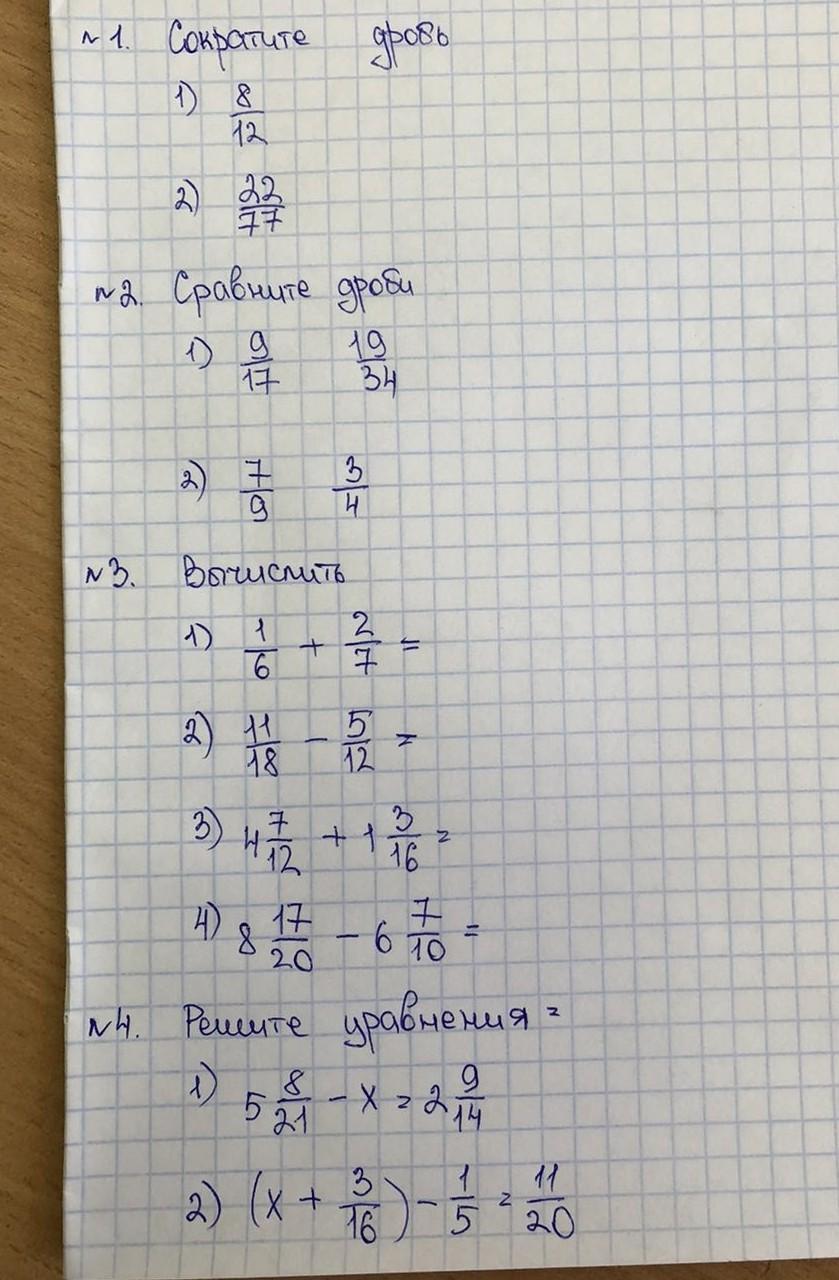 №1. Сократите дробь
1) 8/12
2) 22/77
№2. Сравните дроби
1) 9/17 19/34
2) 7/9 3/4
№3. Вычислить
1) 1/6 + 2/7 =
2) 11/18 - 5/12 =
3) 4 7/12 + 1 3/16 =
4) 8 17/20 - 6 7/10 =
№4. Решите уравнения =
1) 5 8/21 - x = 2 9/14
2) (x + 3/16) - 1/5 = 11/20